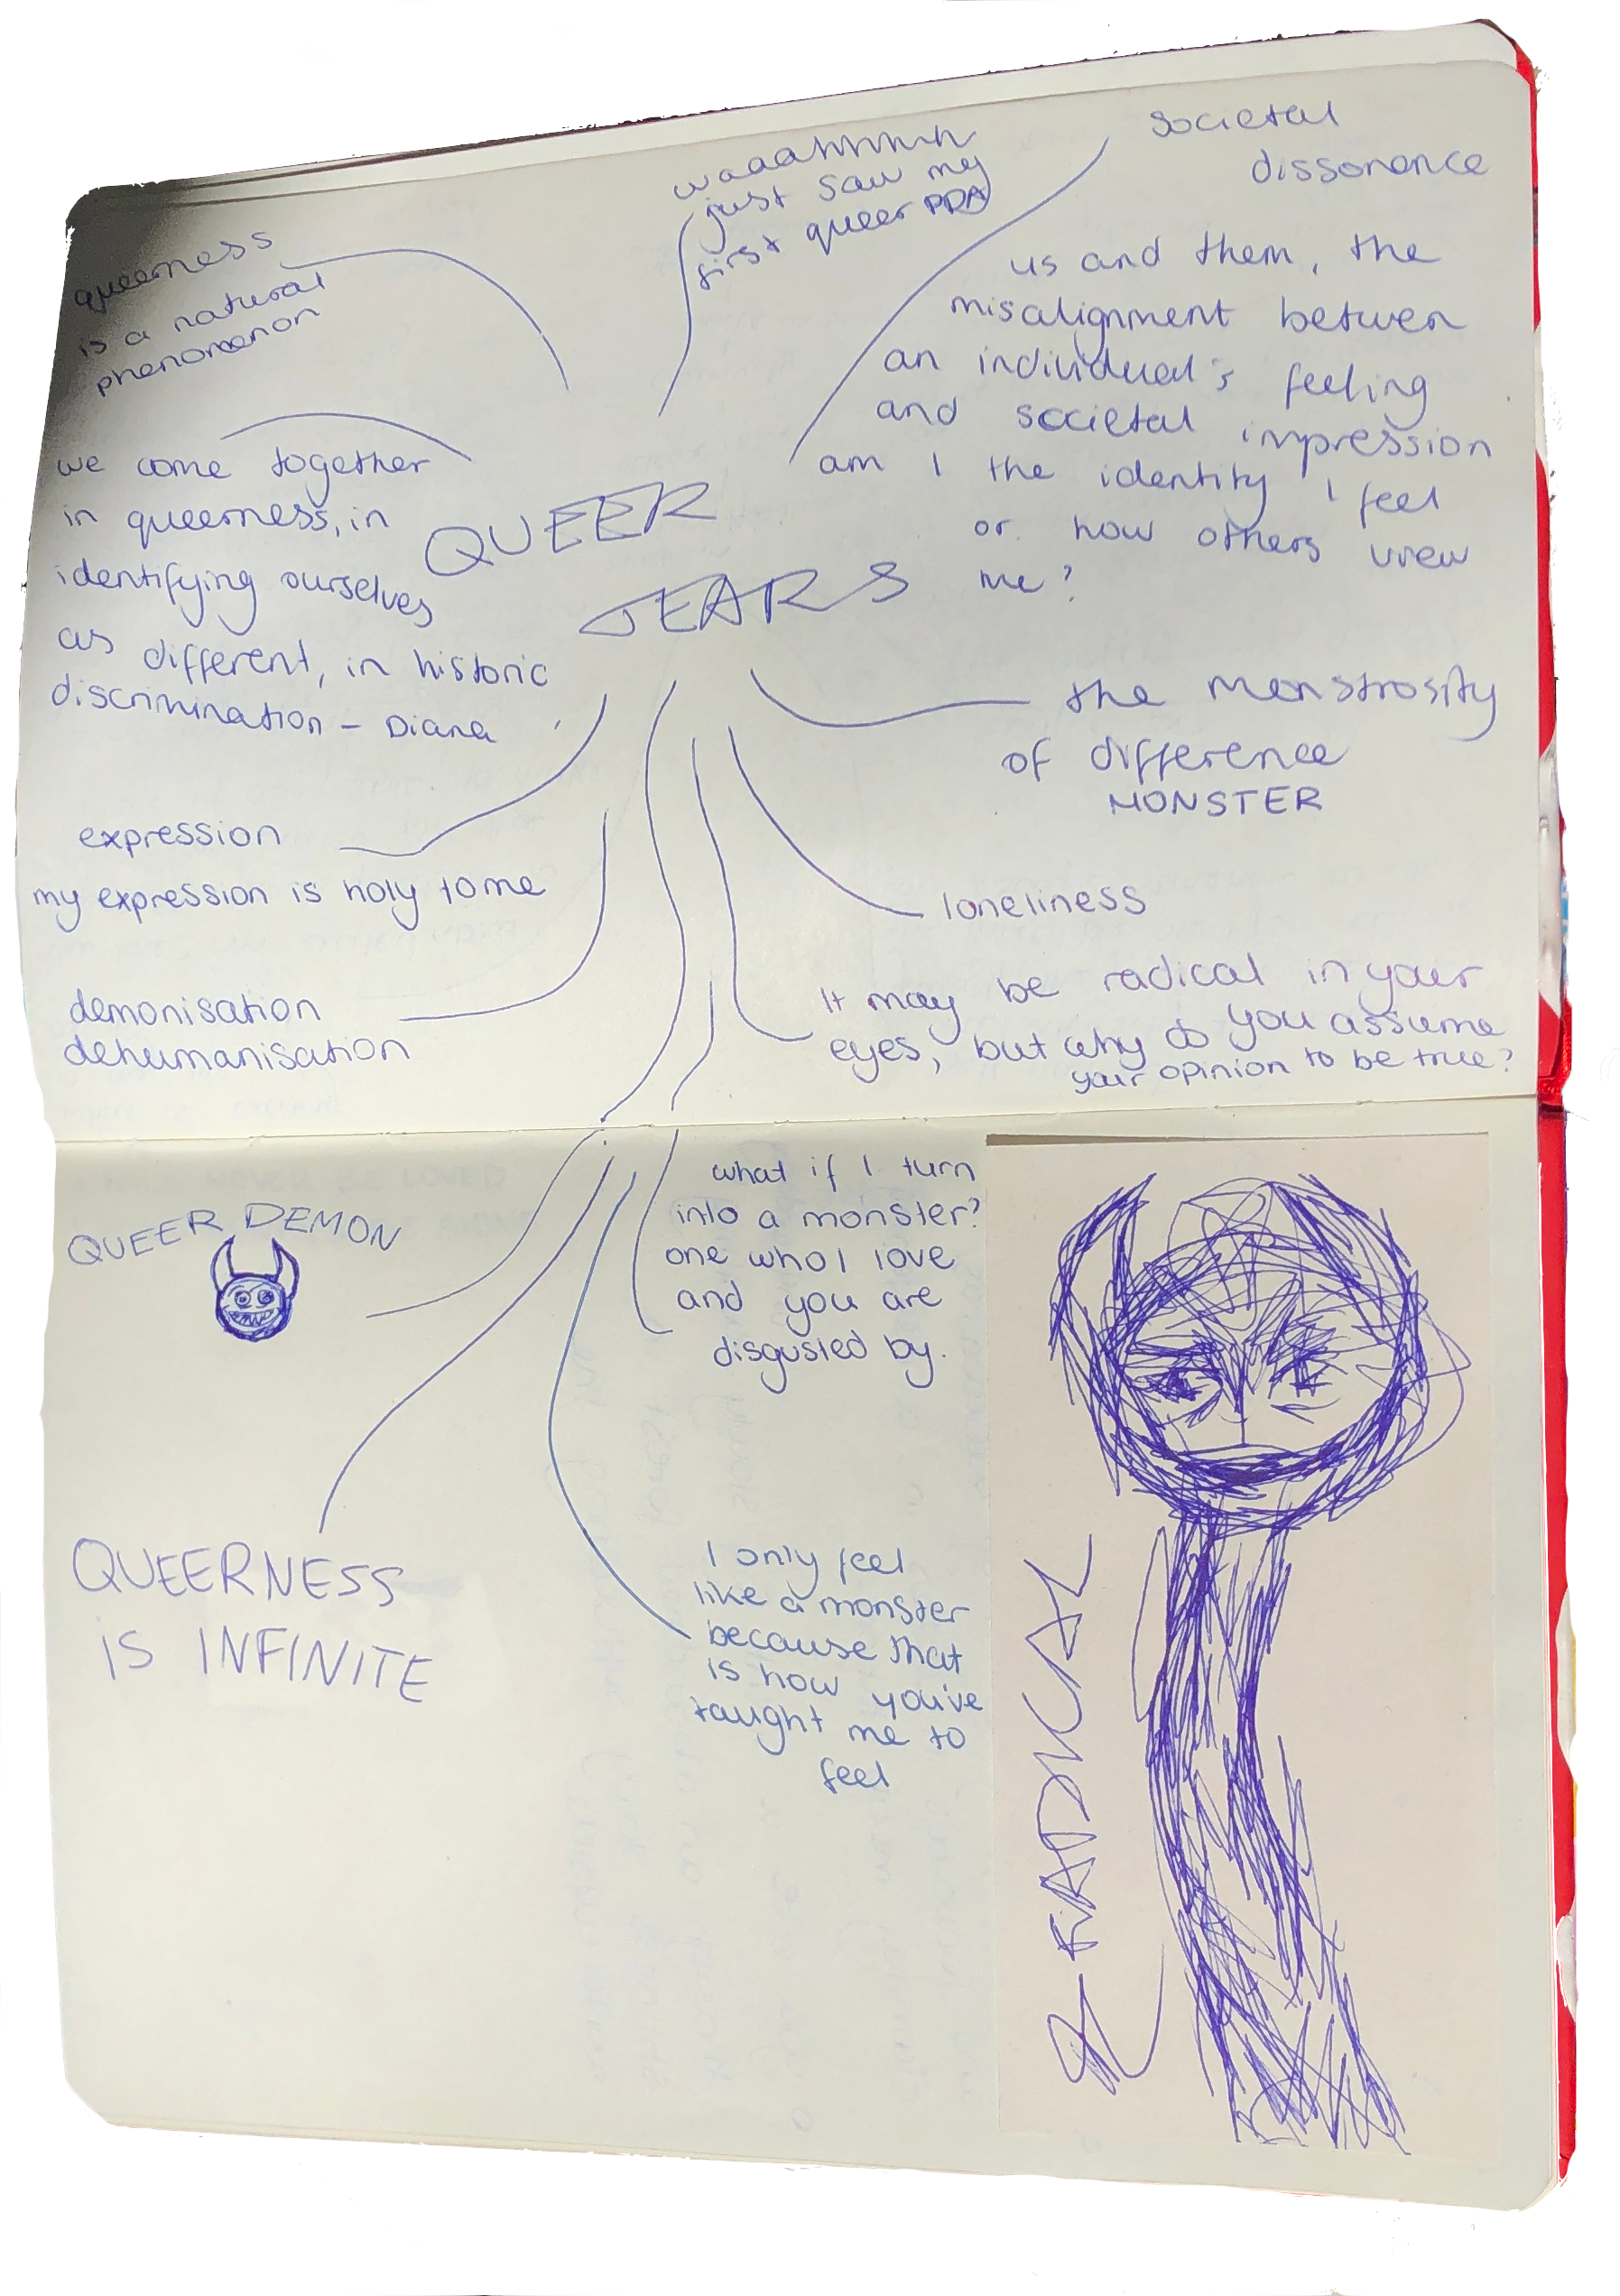 waaahhhhh
just saw my
first queer PDA
societal
dissonance
us and them, the
misalignment between
an individual's feeling
and societal impression
am I the identity I feel
or how others view
me?
queerness
is a natural
phenomenon
we come together
in queerness, in
identifying ourselves
as different, in historic
discrimination – Diana
QUEER
TEARS
the monstrosity
of difference
MONSTER
expression
my expression is holy to me
loneliness
demonisation
dehumanisation
It may be radical in your
eyes, but why do you assume
your opinion to be true?
QUEER DEMON
what if I turn
into a monster?
one who I love
and you are
disgusted by.
QUEERNESS
IS INFINITE
I only feel
like a monster
because that
is how you've
taught me to
feel
RADICAL